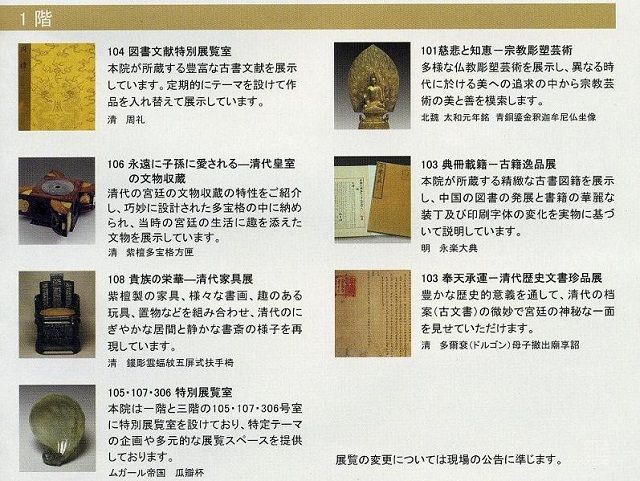 1 階
104 図書文献特別展覧室
本院が所蔵する豊富な古書文献を展示
しています。定期的にテーマを設けて作
品を入れ替えて展示しています。
清　周礼
106 永遠に子孫に愛される―清代皇室
の文物収蔵
清代の宮廷の文物収蔵の特性をご紹介
し、巧妙に設計された多宝格の中に納め
られ、当時の宮廷の生活に趣を添えた
文物を展示しています。
清　紫檀多宝格方匣
108 貴族の栄華―清代家具展
紫檀製の家具、様々な書画、趣のある
玩具、置物などを組み合わせ、清代のに
ぎやかな居間と静かな書斎の様子を再
現しています。
清　鏤彫雲蝠紋五屏式扶手椅
105・107・306 特別展覧室
本院は一階と三階の105・107・306号室
に特別展覧室を設けており、特定テーマ
の企画や多元的な展覧スペースを提供
しております。
ムガール帝国　瓜瓣杯
101慈悲と知恵－宗教彫塑芸術
多様な仏教彫塑芸術を展示し、異なる時
代に於ける美への追求の中から宗教芸
術の美と善を模索します。
北魏 太和元年銘 青銅鎏金釈迦牟尼仏坐像
103 典冊載籍－古籍逸品展
本院が所蔵する精緻な古書図籍を展示
し、中国の図書の発展と書籍の華麗な
装丁及び印刷字体の変化を実物に基づ
いて説明しています。
明　永楽大典
103 奉天承運－清代歴史文書珍品展
豊かな歴史的意義を通して、清代の档
案(古文書)の微妙で宮廷の神秘な一面
を見せていただけます。
清　多爾袞(ドルゴン)母子撤出廟享詔
展覧の変更については現場の公告に準じます。